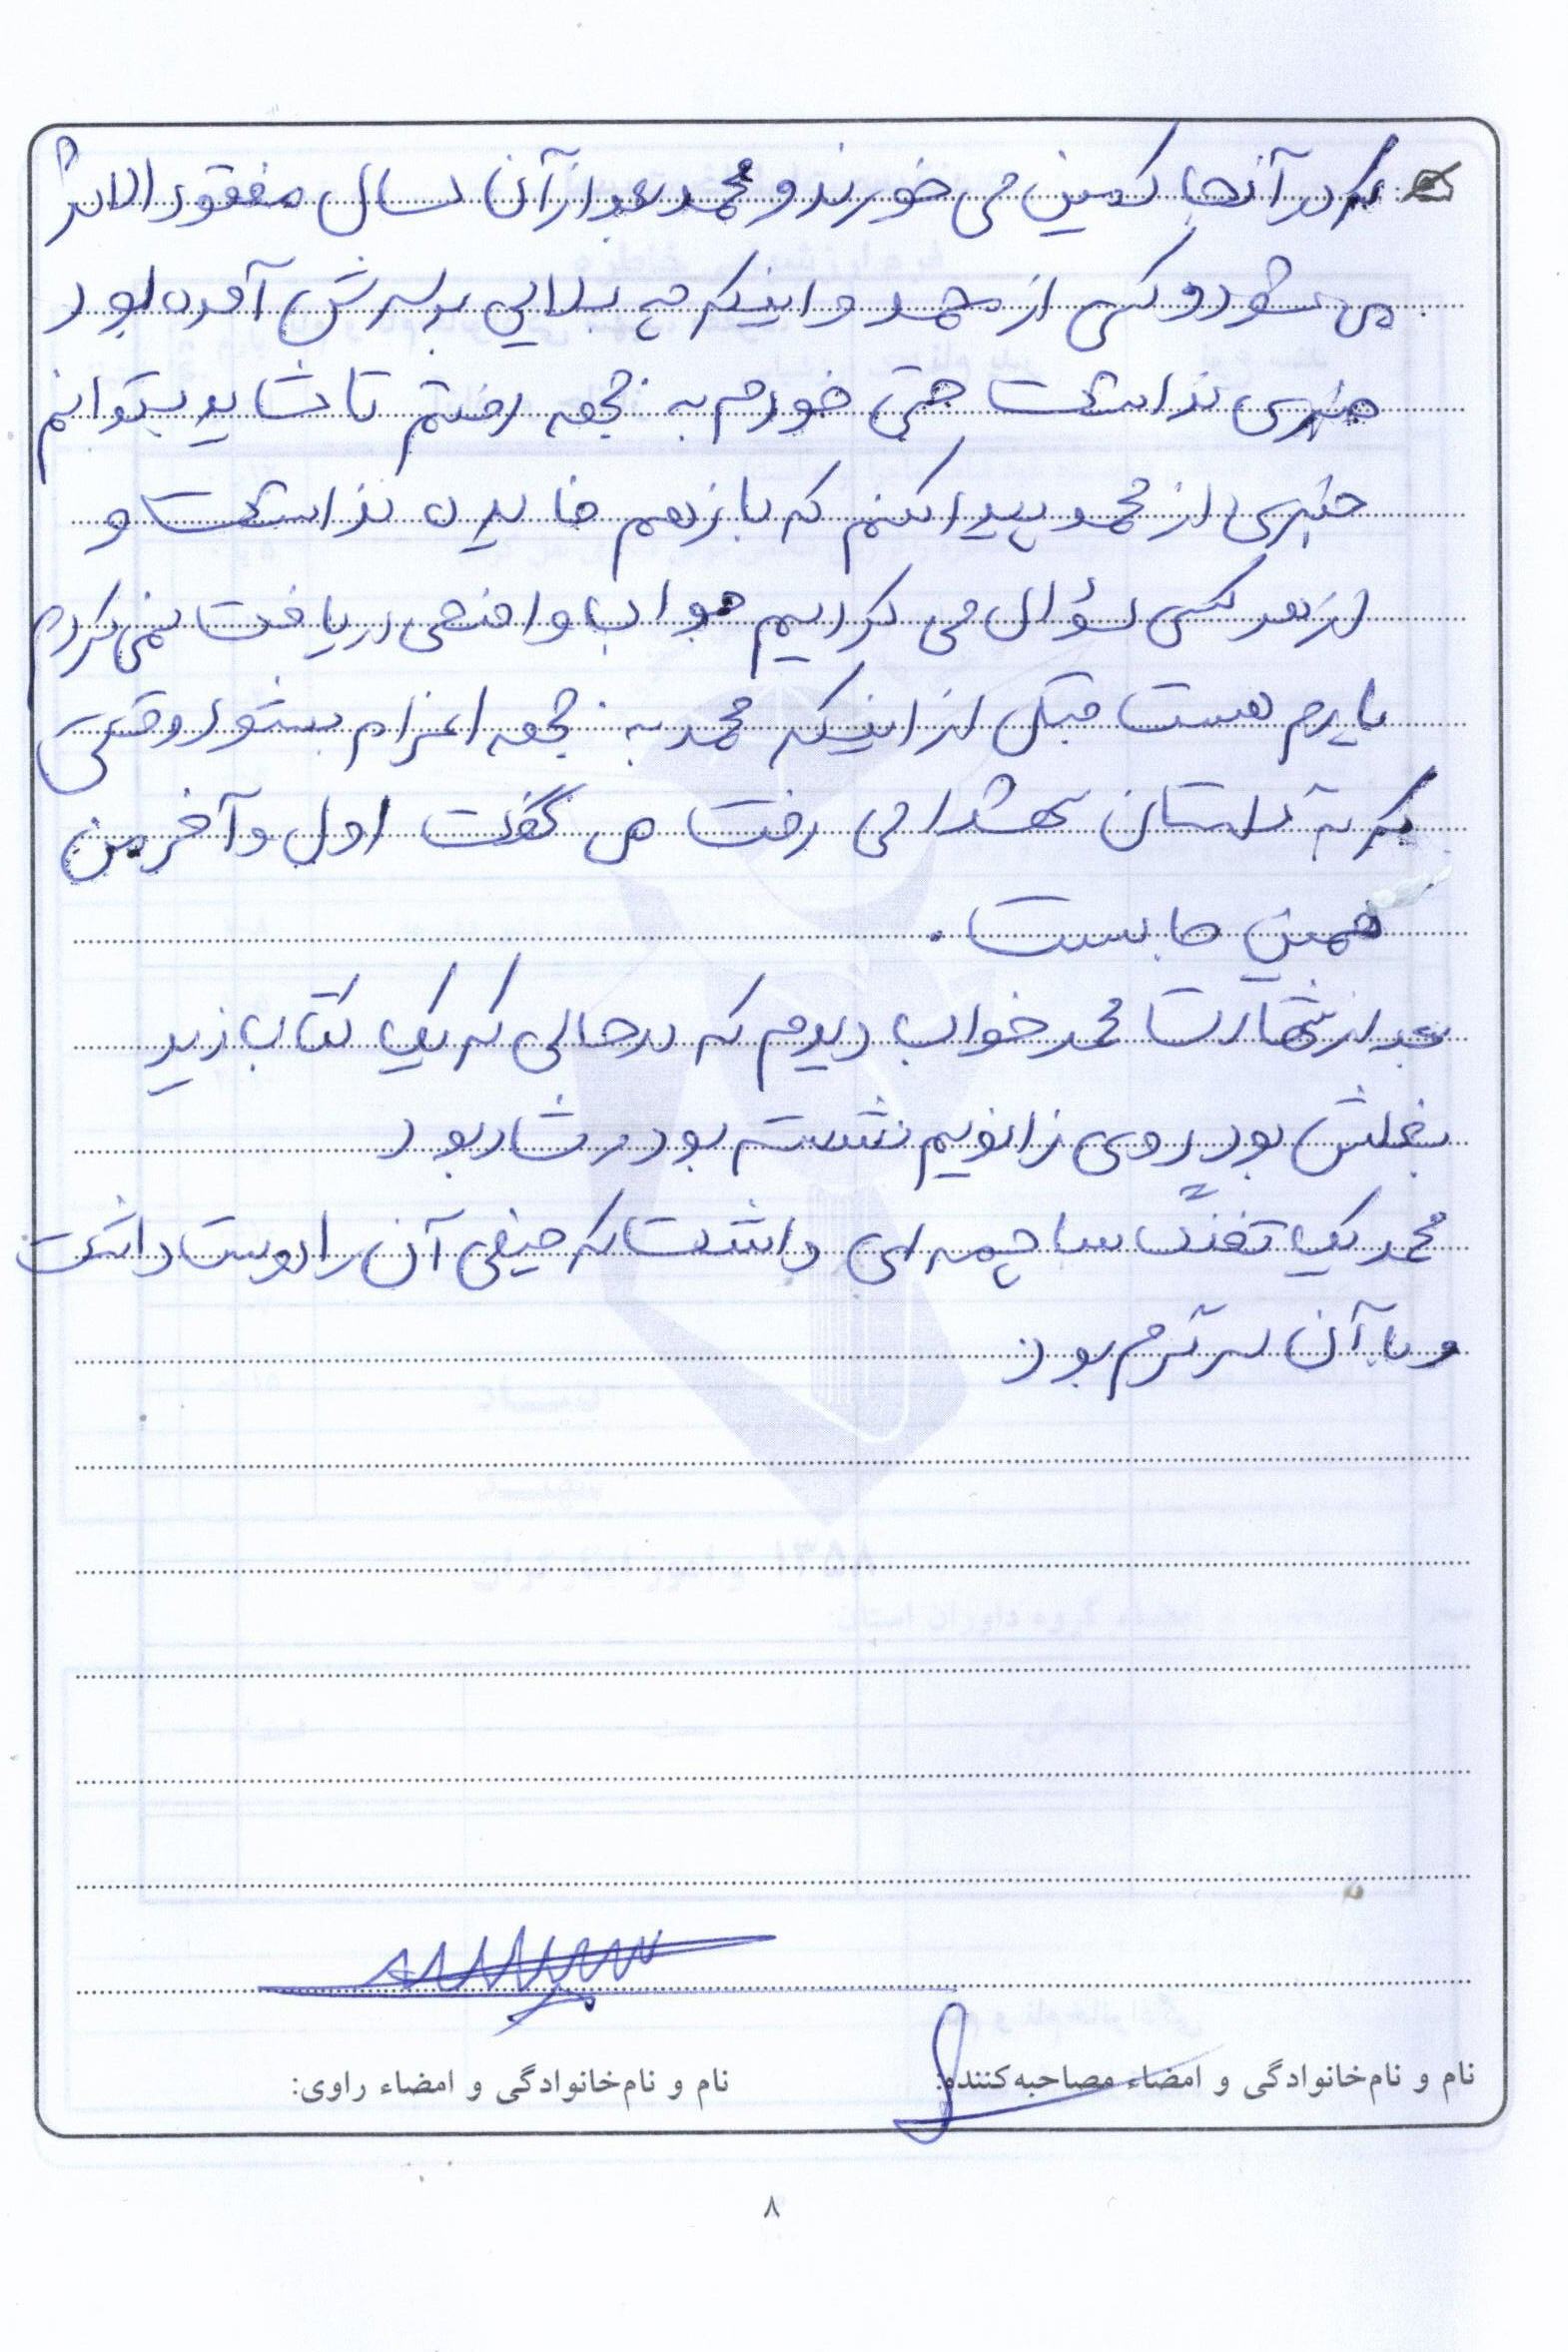 که در آنجا کمین می خورند و محمد بعد از آن سال مفقود الاثر
می شود و کسی از محمد و اینکه چه بلایی بر سرش آمده بود
خبری نداشت حتی خودم به جبهه رفتم تا شاید بتوانم
خبری از محمد پیدا کنم که باز هم فایده نداشت و
از هر کسی سؤال می کردیم جواب واضحی دریافت نمی کردم
یادم هست قبل از اینکه محمد به جبهه اعزام بشود وقتی
که به گلستان شهدا می رفت می گفت اول و آخر من
همین جاست.
بعد از شهادت محمد خواب دیدم که در حالی که یک کتاب زیر
بغلش بود روی زانویم نشسته بود و شاد بود
محمد یک تفنگ ساچمه ای داشت که خیلی آن را دوست داشت
و با آن سرگرم بود
نام و نام‌خانوادگی و امضاء مصاحبه‌کننده:
نام و نام‌خانوادگی و امضاء راوی:
۸